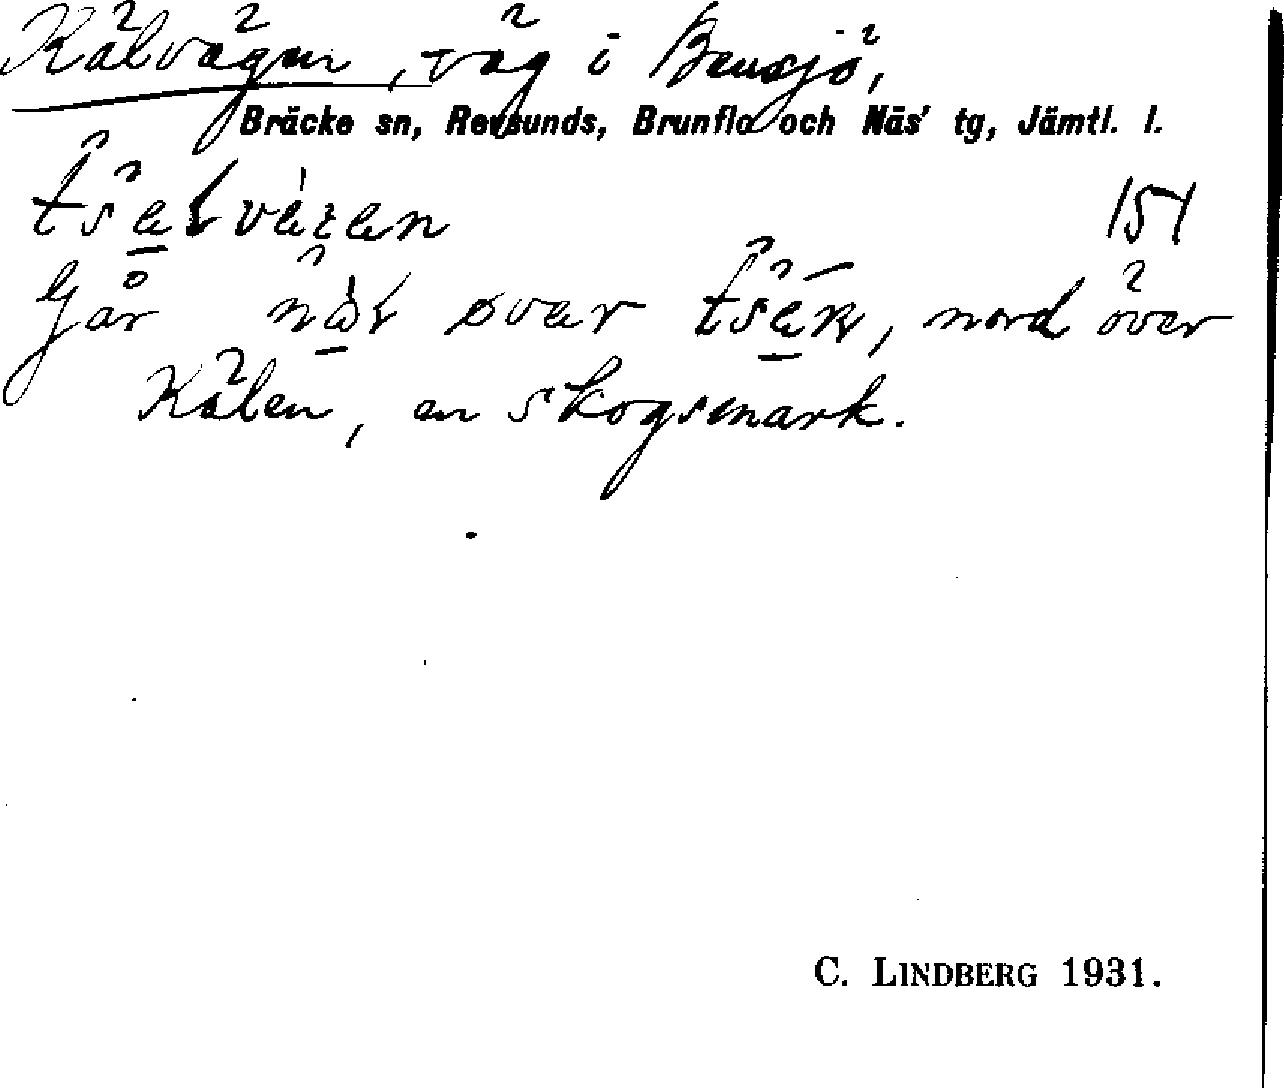 Kälvägen, väg i Bensjö,
Bräcke sn, Revsunds, Brunflo och Näs' tg, Jämtl. l.
151
Går över nord över
Kälen, en skogsmark.
C. LINDBERG 1931.